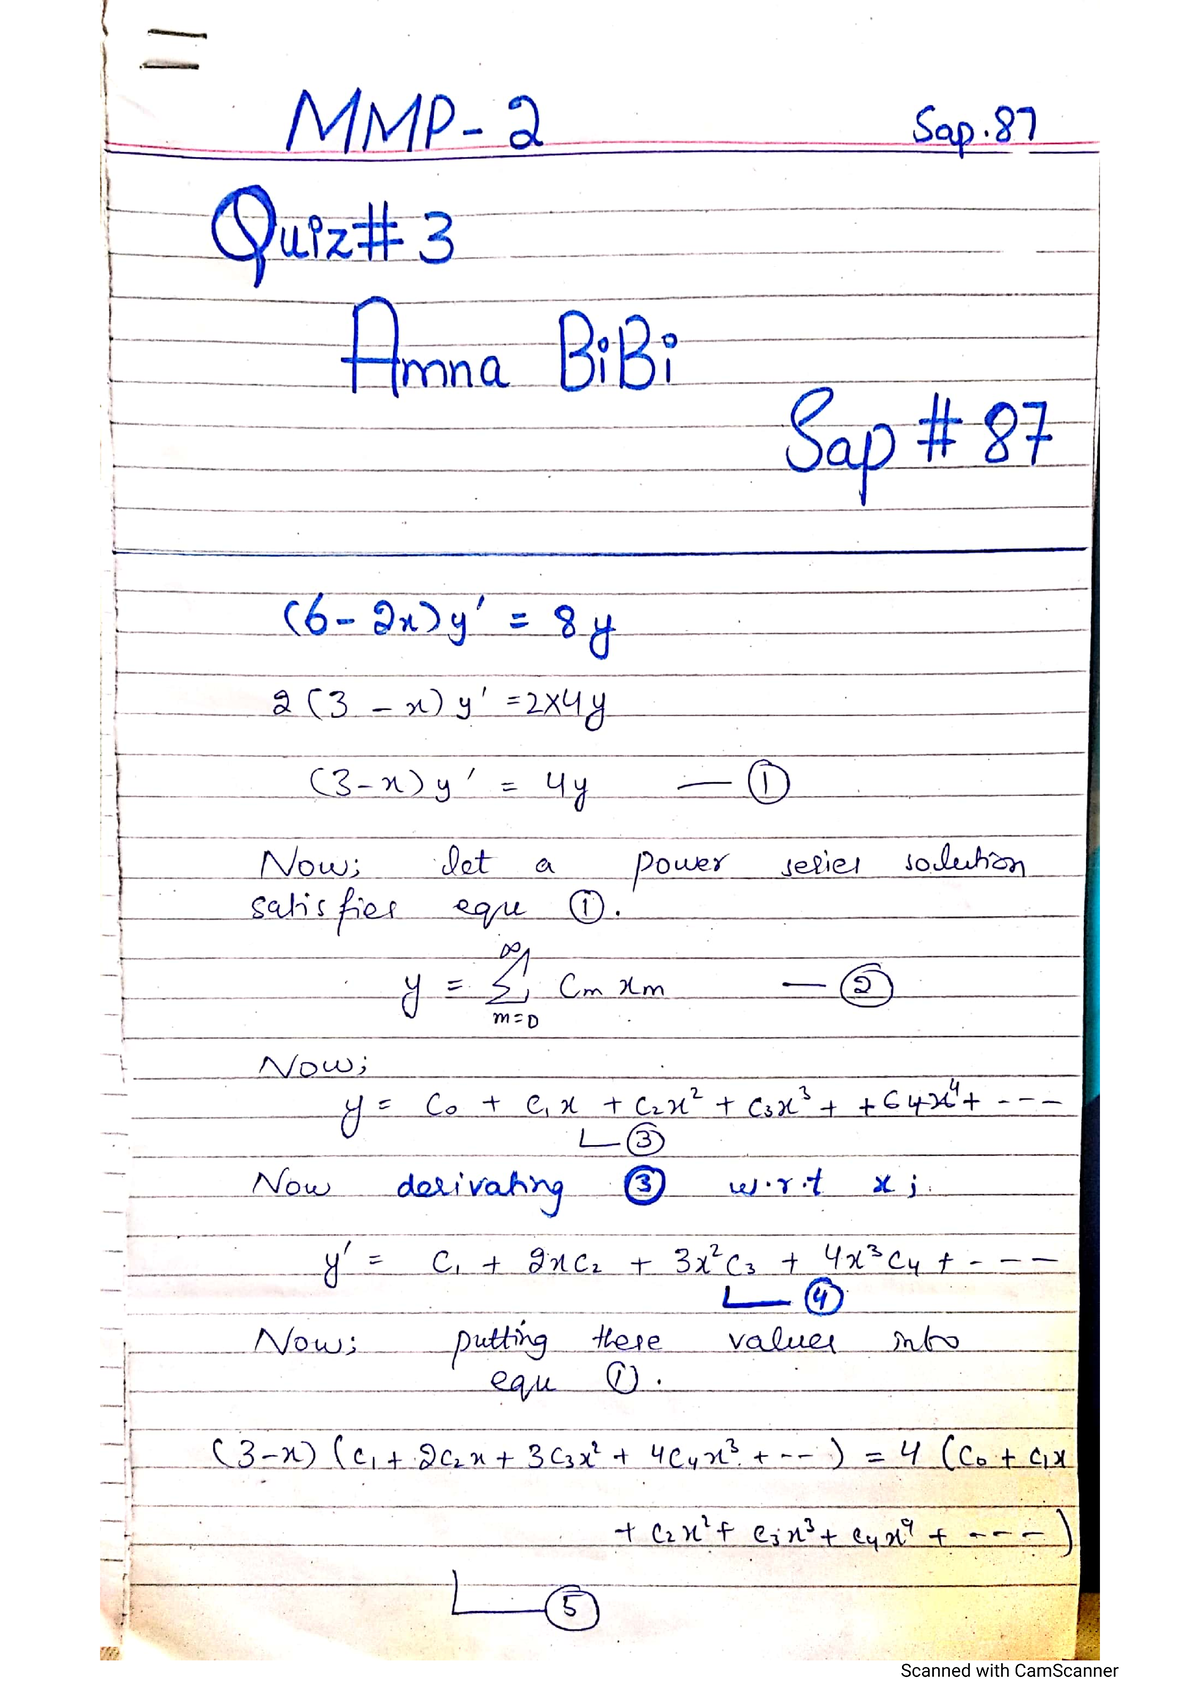 MMP-2
Sap.87
Quiz# 3
Amna BiBi
Sap # 87
(6-2x)y' = 8y
2(3-x)y' =2x4y
(3-x)y' = 4y — ①
Now; let a power series solution
satisfies equ ①.
y = ∑ Cm xm — ②
∞
m=0
Now;
y = C₀ + C₁x + C₂x² + C₃x³ + + C4x⁴+ ---
③
Now derivating ③ w.r.t x;
y' = C₁ + 2xC₂ + 3x²C₃ + 4x³C₄ + ----
④
Now; putting these values into
equ ①.
(3-x) (C₁+2C₂x+3C₃x²+4C₄x³+--) = 4 (C₀+C₁x
+ C₂x²+ C₃x³+ C₄x⁴ + ---)
⑤
Scanned with CamScanner